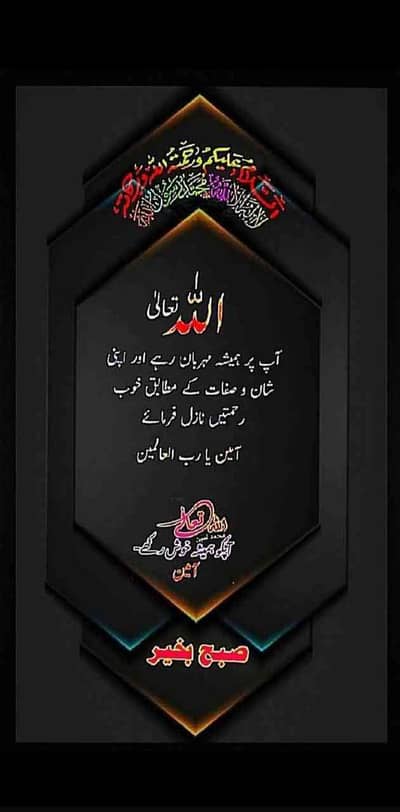 السلام علیکم ورحمۃ اللہ وبرکاتہ
لا الہ الا اللہ محمد رسول اللہ
اللہ تعالیٰ
آپ پر ہمیشہ مہربان رہے اور اپنی
شان و صفات کے مطابق خوب
رحمتیں نازل فرمائے
آمین یا رب العالمین
اللہ تعالیٰ
آپکو ہمیشہ خوش رکھے۔
آمین
صبح بخیر